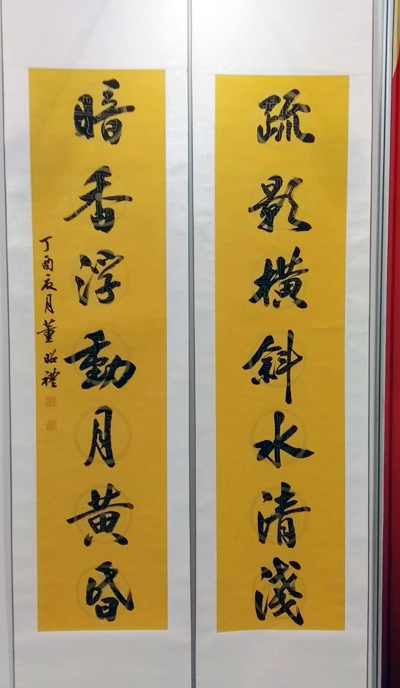 疏影橫斜水清淺
暗香浮動月黃昏
丁酉夏月董昭禮